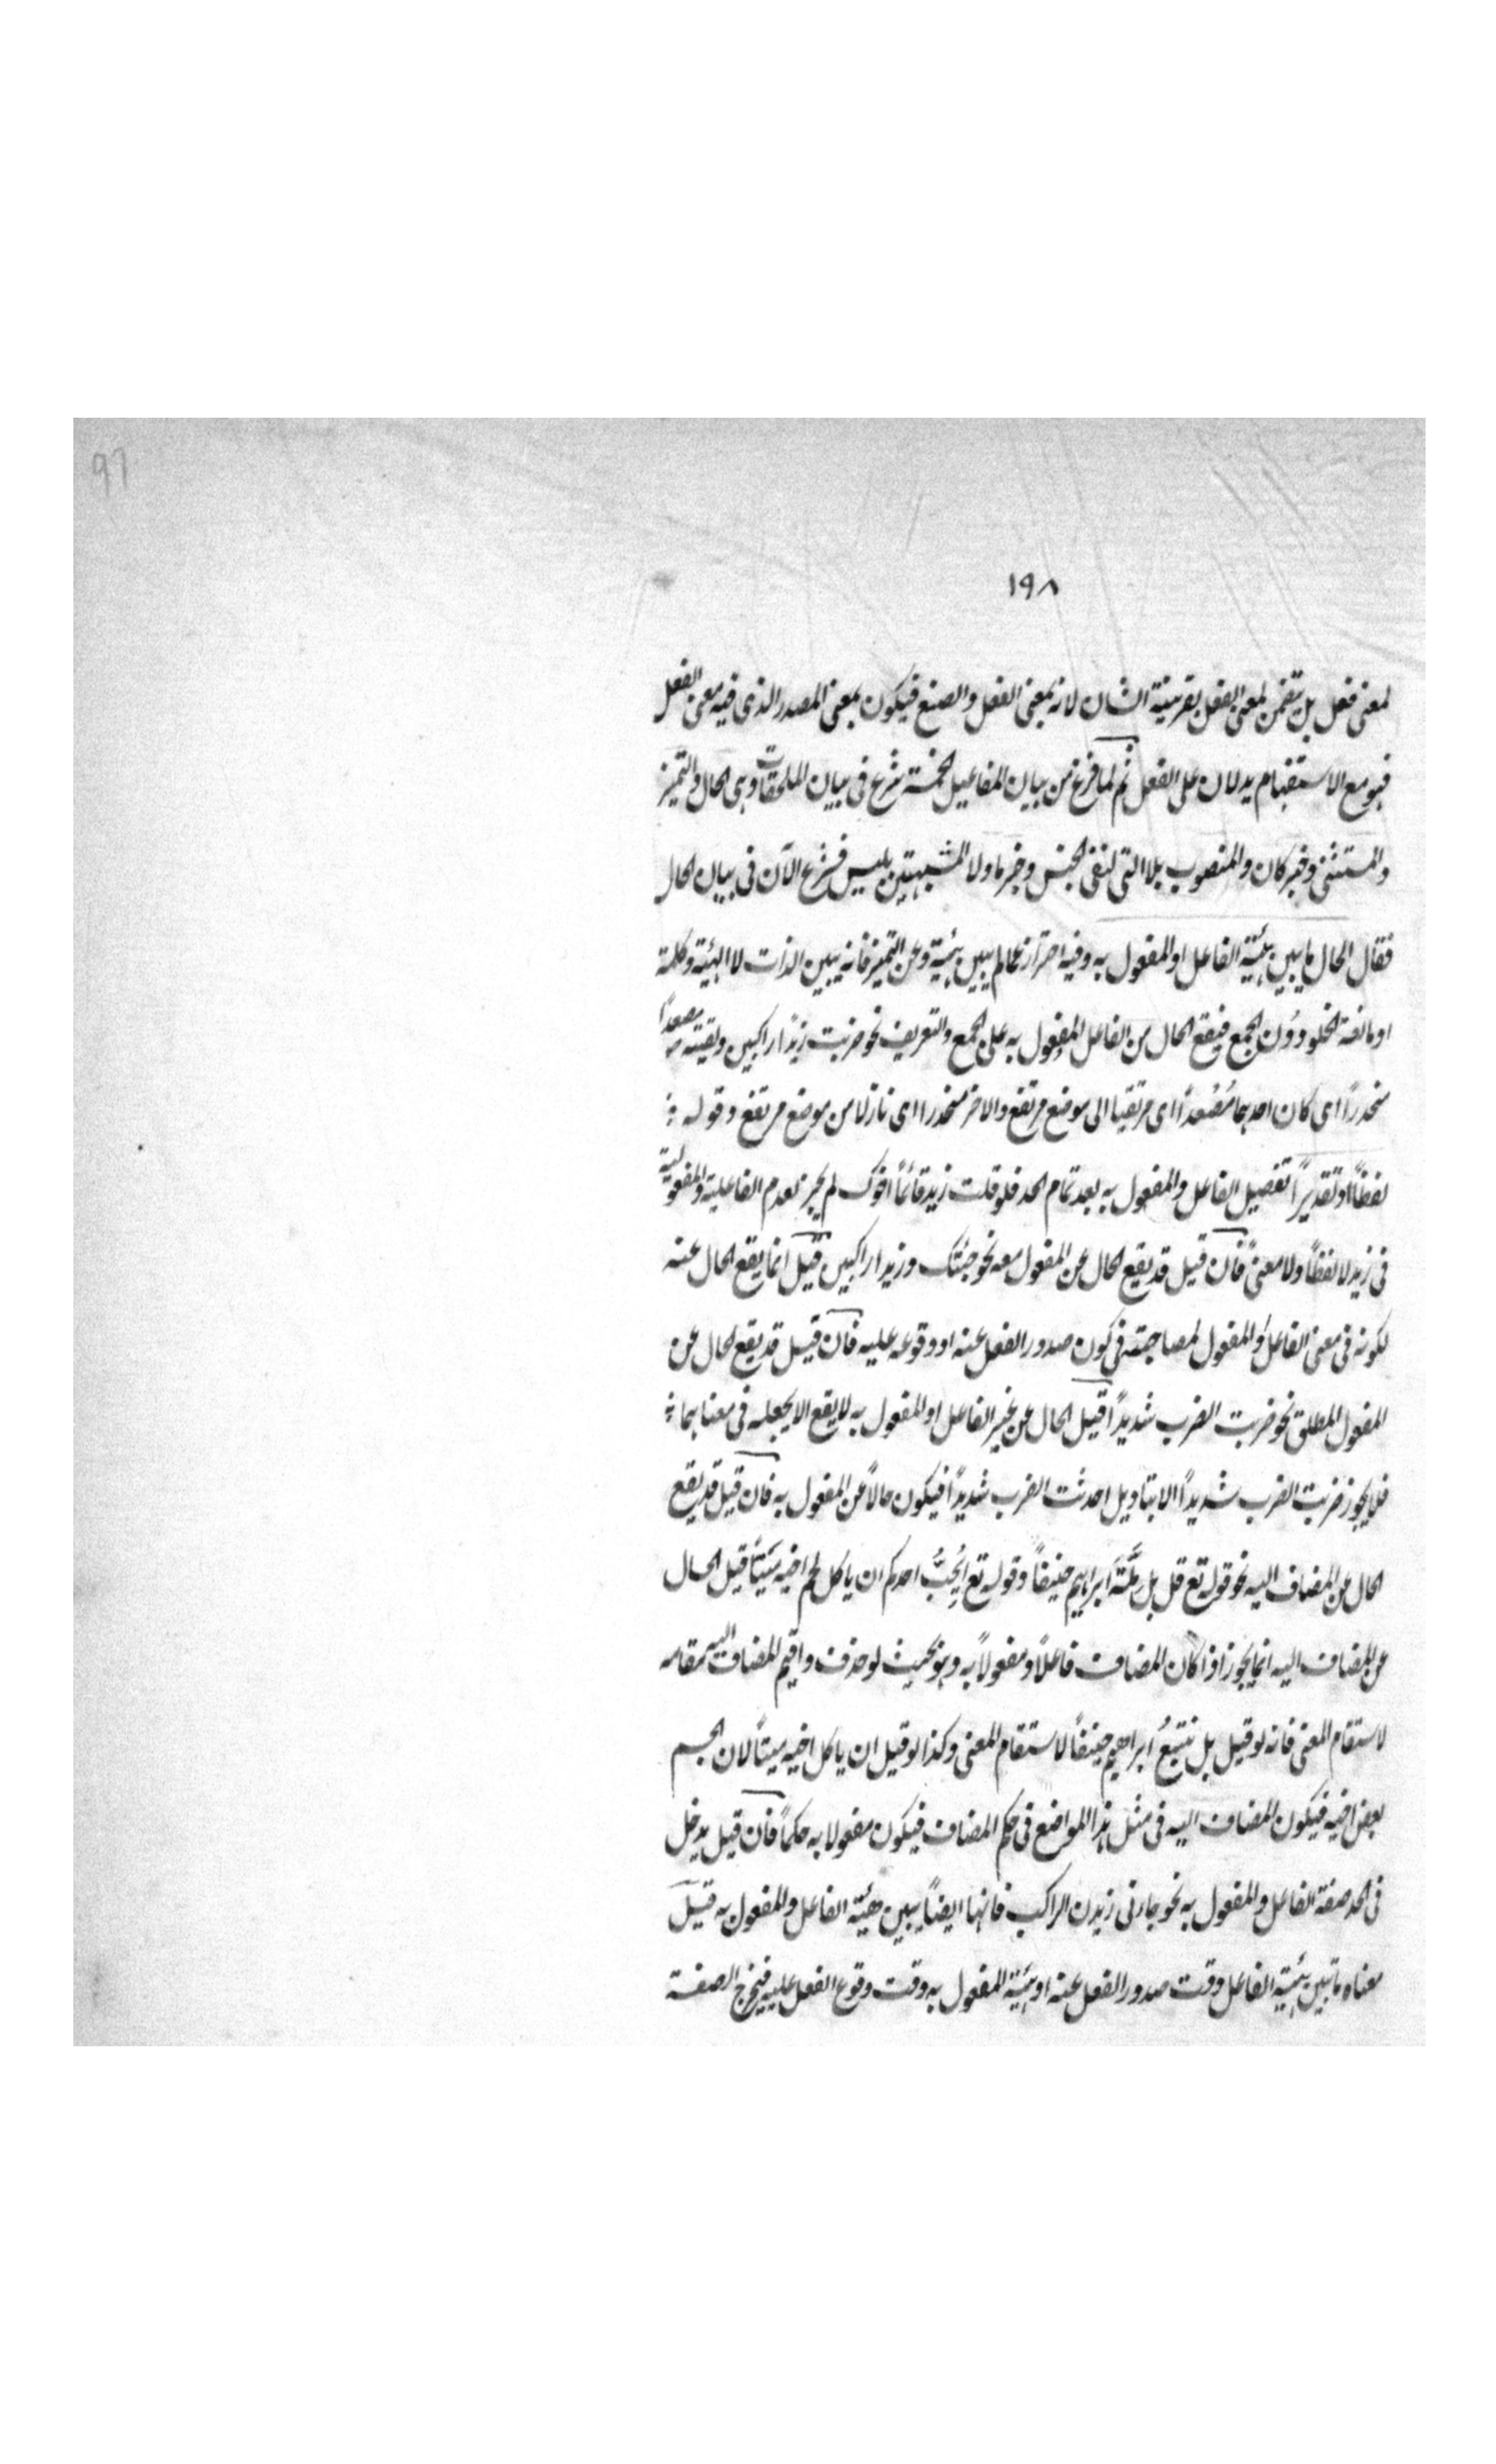 97
١٩٨
لمعنى فعل بل يتضمن لمعنى الفعل بقرينية الشان لانه بمعنى الفعل والصنع فيكون بمعنى المصدر الذى فيه معنى الفعل
فهو مع الاستفهام يدلان على الفعل ثم لما فرغ من بيان المفاعيل الخمسة شرع فى بيان الملحقات وهى الحال والتميز
والمستثنى وخبر كان والمنصوب بلا التى لنفى الجنس وخبر ما ولا المشبهتين بليس فشرع الآن فى بيان الحال
فقال الحال ما يبين هيئة الفاعل او المفعول به وفيه احتراز عما لم يبين هيئة وعن التميز فانه يبين الذات لا الهيئة وكلمة
او مانعة الخلو دون الجمع فيقع الحال من الفاعل المفعول به على الجمع والتعريف نحو ضربت زيدًا راكبين ولقيته مصعدًا
منحدرًا اى كان احدهما مُصْعدًا اى مرتقيا الى موضع مرتفع والاخر منحدرا اى نازلا من موضع مرتفع وقوله
لفظًا او تقديرًا تفصيل الفاعل والمفعول به بعد تمام الحد فلو قلت زيد قائمًا اخوك لم يجز لعدم الفاعلية والمفعولية
فى زيد لا لفظًا ولا معنىً فان قيل قد يقع الحال عن المفعول معه نحو جئتك وزيدا راكبين قيل انما يقع الحال عنه
لكونه فى معنى الفاعل او المفعول لمصاحبته فى كون صدور الفعل عنه او وقوعه عليه فان قيل قد يقع الحال عن
المفعول المطلق نحو ضربت الضرب شديدًا قيل الحال عن غير الفاعل او المفعول به لا يقع الا بجعله فى معناهما
فلا يجوز ضربت الضرب شديدًا الا بتاويل احدثت الضرب شديدًا فيكون حالًا عن المفعول به فان قيل قد يقع
الحال عن المضاف اليه نحو قوله تع قل بل مِلَّةَ ابراهيم حنيفًا وقوله تع اَيُحِبُّ احدكم ان ياكل لحم اخيه ميتًا قيل الحال
عن المضاف اليه انما يجوز اذا كان المضاف فاعلًا او مفعولًا به وهو بحيث لو حذف واقيم المضاف اليه مقامه
لاستقام المعنى فانه لو قيل بل نتبعُ ابراهيم حنيفًا لاستقام المعنى وكذا لو قيل ان ياكل اخيه ميتًا لان الجسم
بعض اخيه فيكون المضاف اليه فى مثل هذا المواضع فى حكم المضاف فيكون مفعولا به حكمًا فان قيل يدخل
فى الحد صفة الفاعل والمفعول به نحو جاءنى زيدن الراكب فانها ايضًا يبين هيئة الفاعل والمفعول به قيل
معناه ما تبين هيئة الفاعل وقت صدور الفعل عنه او هيئة المفعول به وقت وقوع الفعل عليه فيخرج الصفة